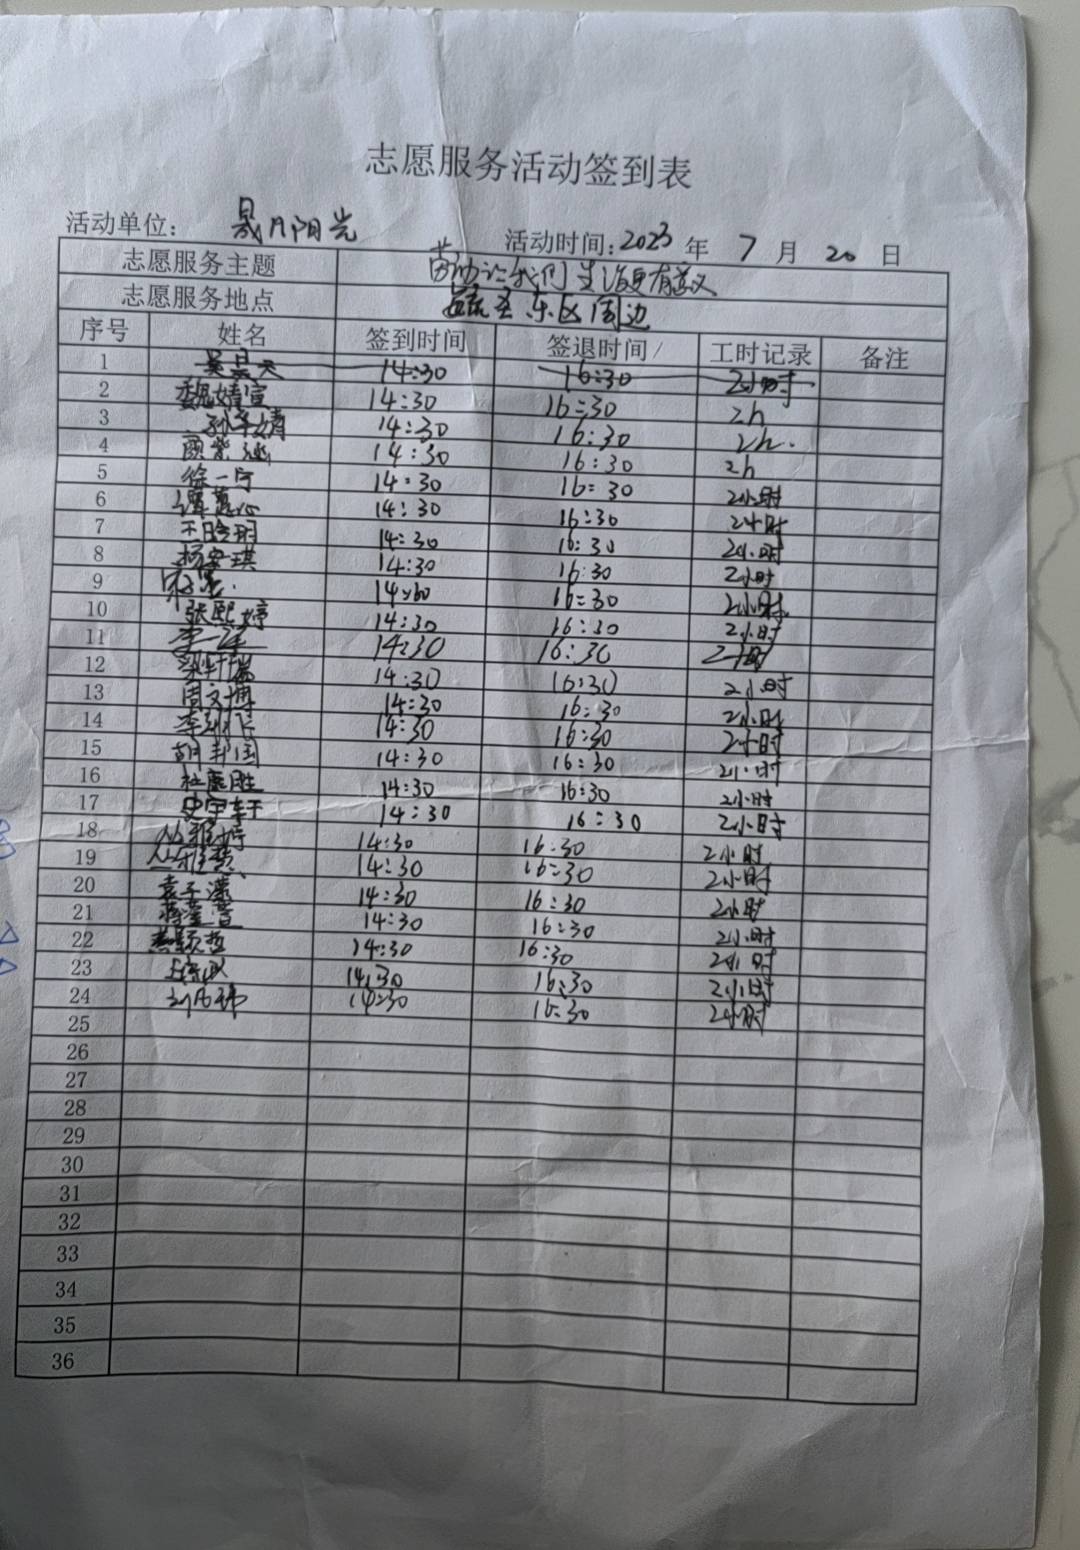 志愿服务活动签到表
活动单位: 晟月阳光 活动时间: 2023 年 7 月 20 日
志愿服务主题 劳动让我们生活更有意义
志愿服务地点 东区周边
序号 姓名 签到时间 签退时间 工时记录 备注
1 吴昊天 14:30 16:30 2小时
2 魏婧宣 14:30 16:30 2h
3 14:30 16:30 2h.
4 颜紫 14:30 16:30 2h
5 徐一宁 14:30 16:30 2小时
6 谭蕙心 14:30 16:30 2小时
7 王晗玥 14:30 16:30 2小时
8 杨安琪 14:30 16:30 2小时
9 16:30 2小时
10 张熙婷 14:30 16:30 2小时
11 李一泽 14:30 16:30 2小时
12 梁轩瑞 14:30 16:30 2小时
13 周文博 14:30 16:30 2小时
14 14:30 16:30 2小时
15 胡邦国 14:30 16:30 2小时
16 杜愿胜 14:30 16:30 2小时
17 史宇轩 14:30 16:30 2小时
18 丛雅婷 14:30 16:30 2小时
19 丛雅慧 14:30 16:30 2小时
20 袁子濛 14:30 16:30 2小时
21 蒋萱 14:30 16:30 2小时
22 14:30 16:30 2小时
23 14:30 16:30 2小时
24 14:30 16:30 2小时
25
26
27
28
29
30
31
32
33
34
35
36